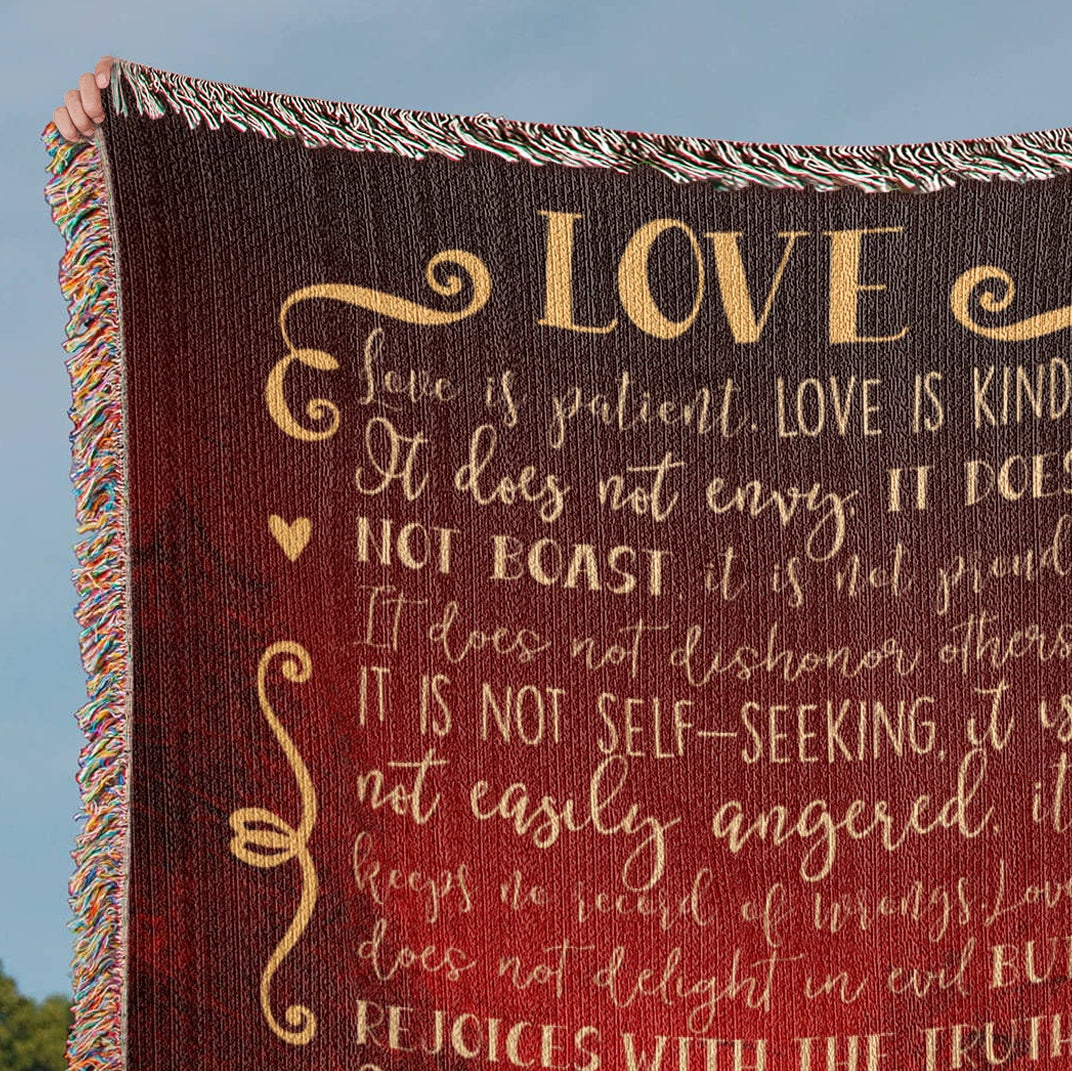 LOVE
Love is patient. LOVE IS KIND
It does not envy, IT DOES
NOT BOAST, it is not proud
It does not dishonor others
IT IS NOT SELF-SEEKING, it is
not easily angered, it
keeps no record of wrongs. Love
does not delight in evil BUT
REJOICES WITH THE TRUTH